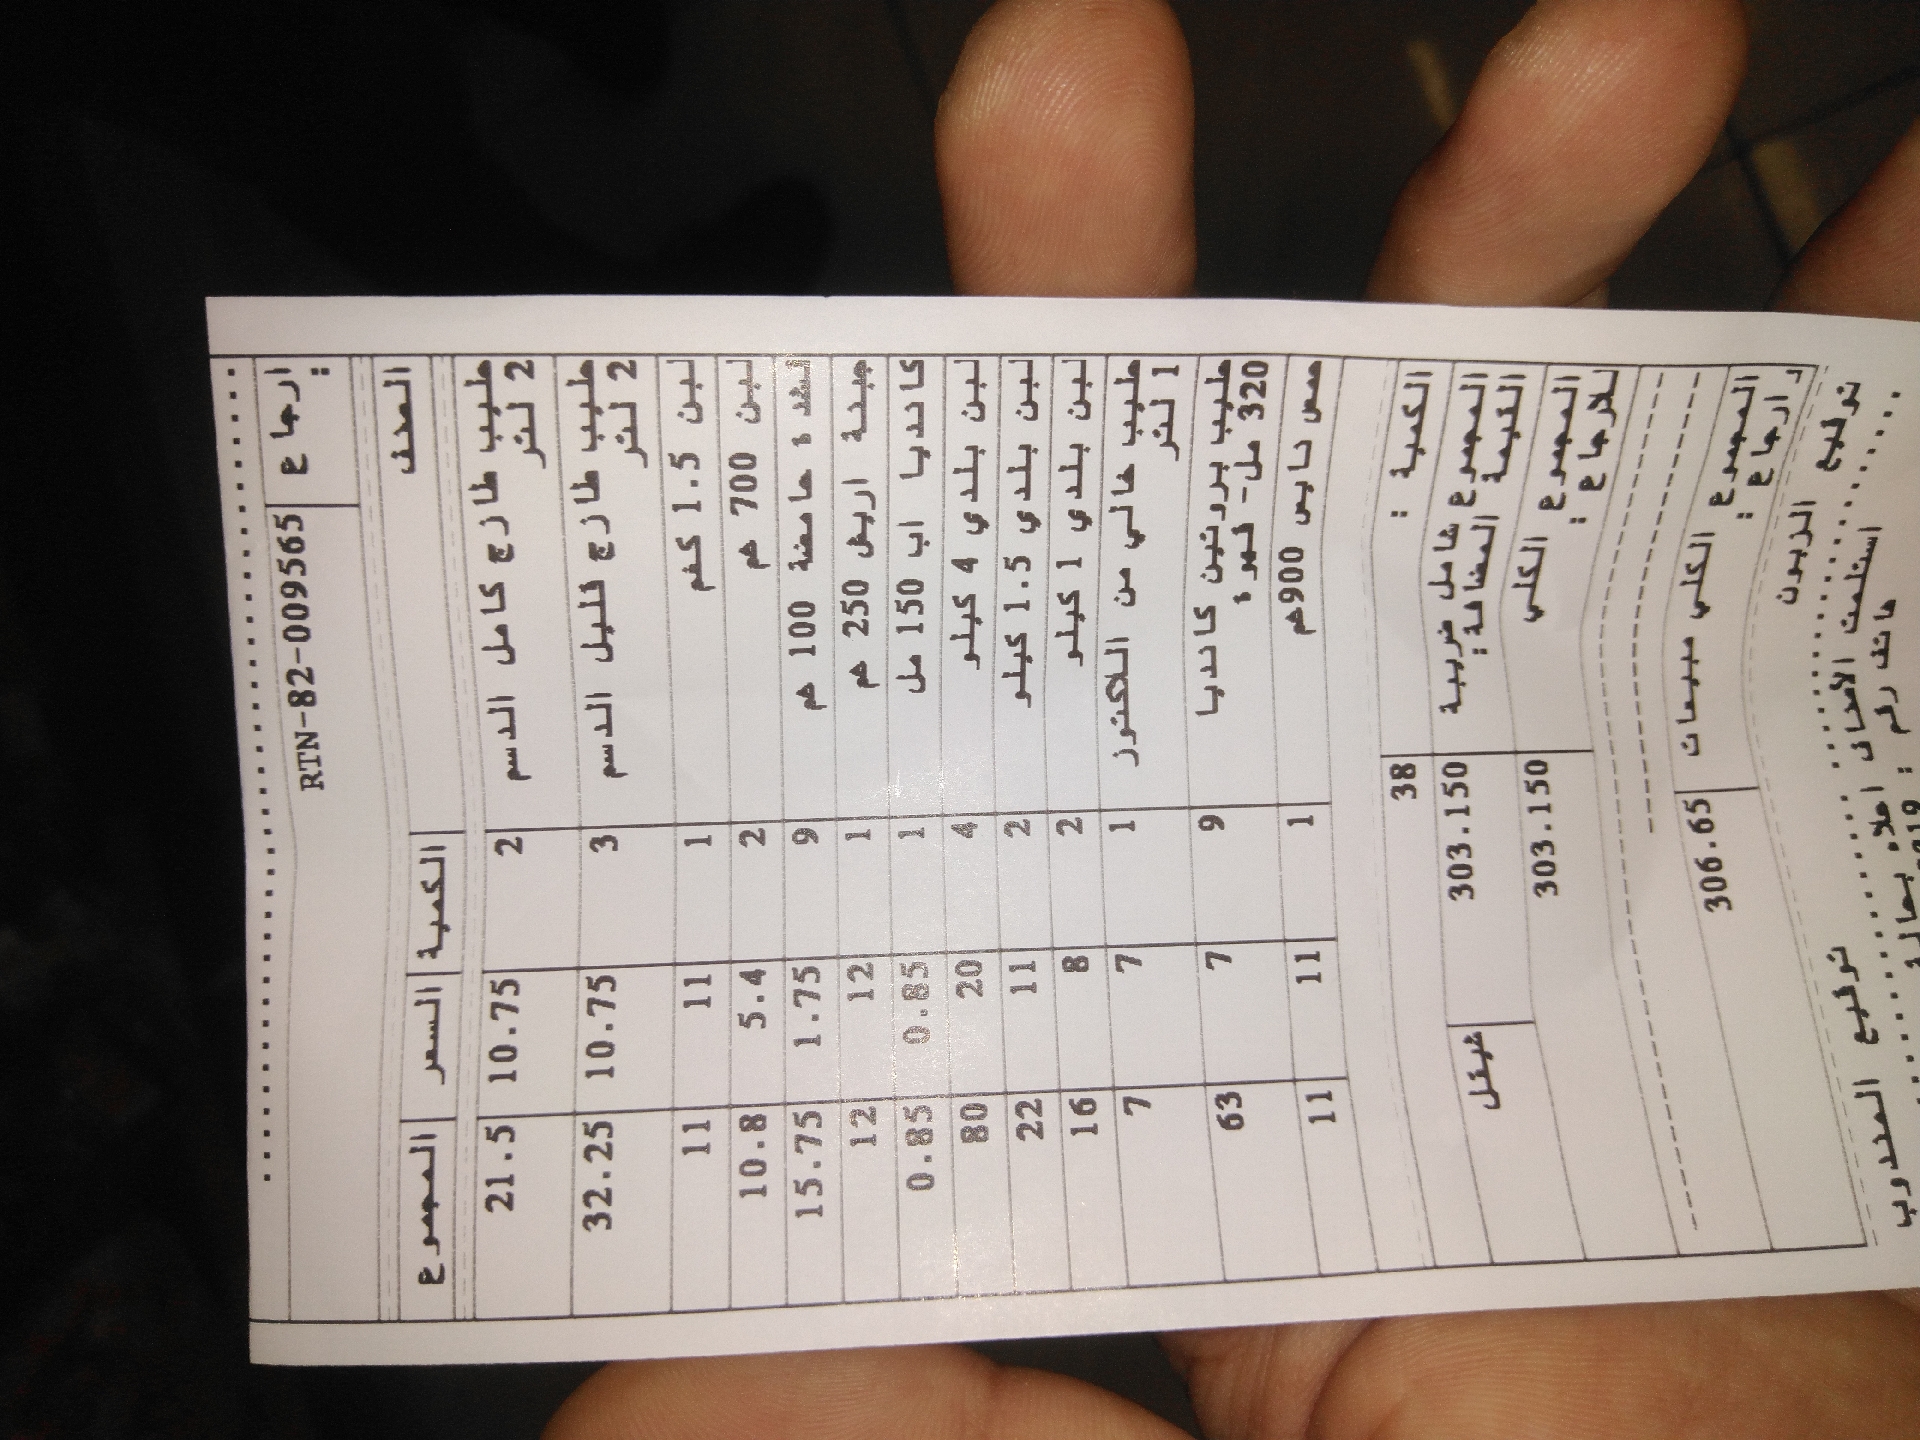 ارجاع : RTN-82-009565
الصنف الكمية السعر المجموع
حليب طازج كامل الدسم 2 10.75 21.5
2 لتر
حليب طازج قليل الدسم 3 10.75 32.25
2 لتر
لبن 1.5 كغم 1 11 11
لبن 700 غم 2 5.4 10.8
قشدة حامضة 100 غم 9 1.75 15.75
جبنة اريش 250 غم 1 12 12
كانديا اب 150 مل 1 0.85 0.85
لبن بلدي 4 كيلو 4 20 80
لبن بلدي 1.5 كيلو 2 11 22
لبن بلدي 1 كيلو 2 8 16
حليب خالي من اللاكتوز 1 7 7
1 لتر
حليب بروتين كانديا 9 7 63
320 مل- قهوة
900غم 1 11 11
الكمية : 38
المجموع شامل ضريبة 303.150 شيقل
القيمة المضافة:
المجموع الكلي 303.150
للارجاع :
المجموع الكلي مبيعات 306.65
و ارجاع :
توقيع الزبون توقيع المندوب
استلمت الأصناف اعلاه بحالة
هاتف رقم :